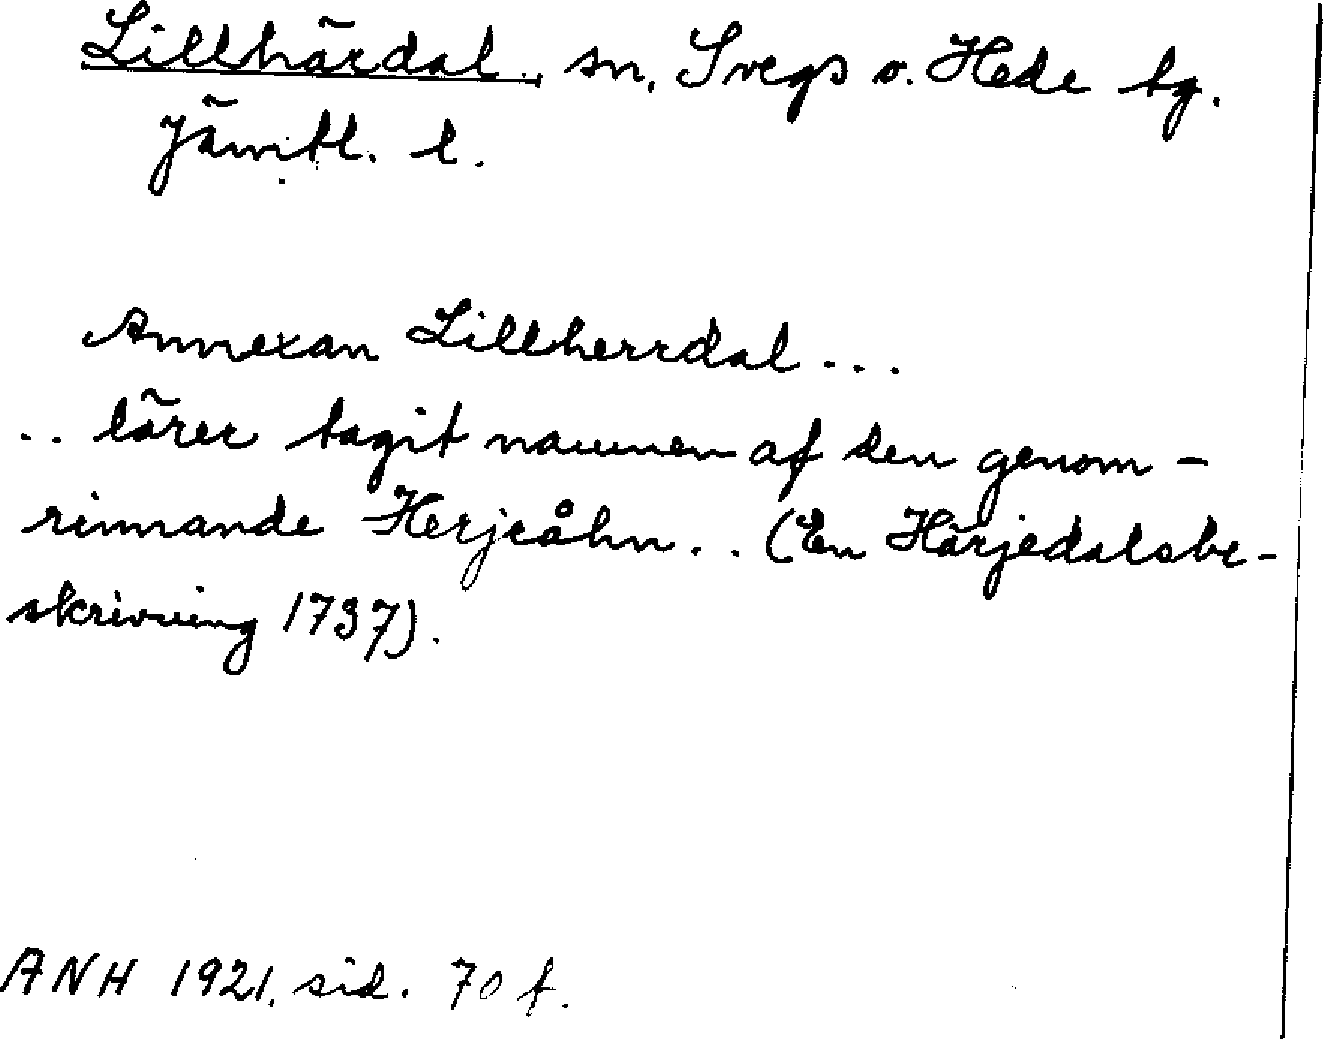 Lillhärdal sn, Svegs o. Hede tg.
Jämtl. l.
Annexan Lillherrdal...
.. lärer tagit namnen af den genom-
rinnande Herjeåhn.. (En Härjedalsbe-
skrivning 1737).
ANH 1921, sid. 70 f.